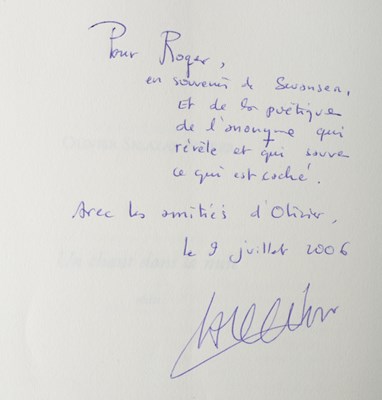 Pour Roger,
en souvenir de Swansea,
Et de la poétique
de l'anonyme qui
révèle et qui sauve
ce qui est caché.
Avec les amitiés d'Olivier,
le 9 juillet 2006